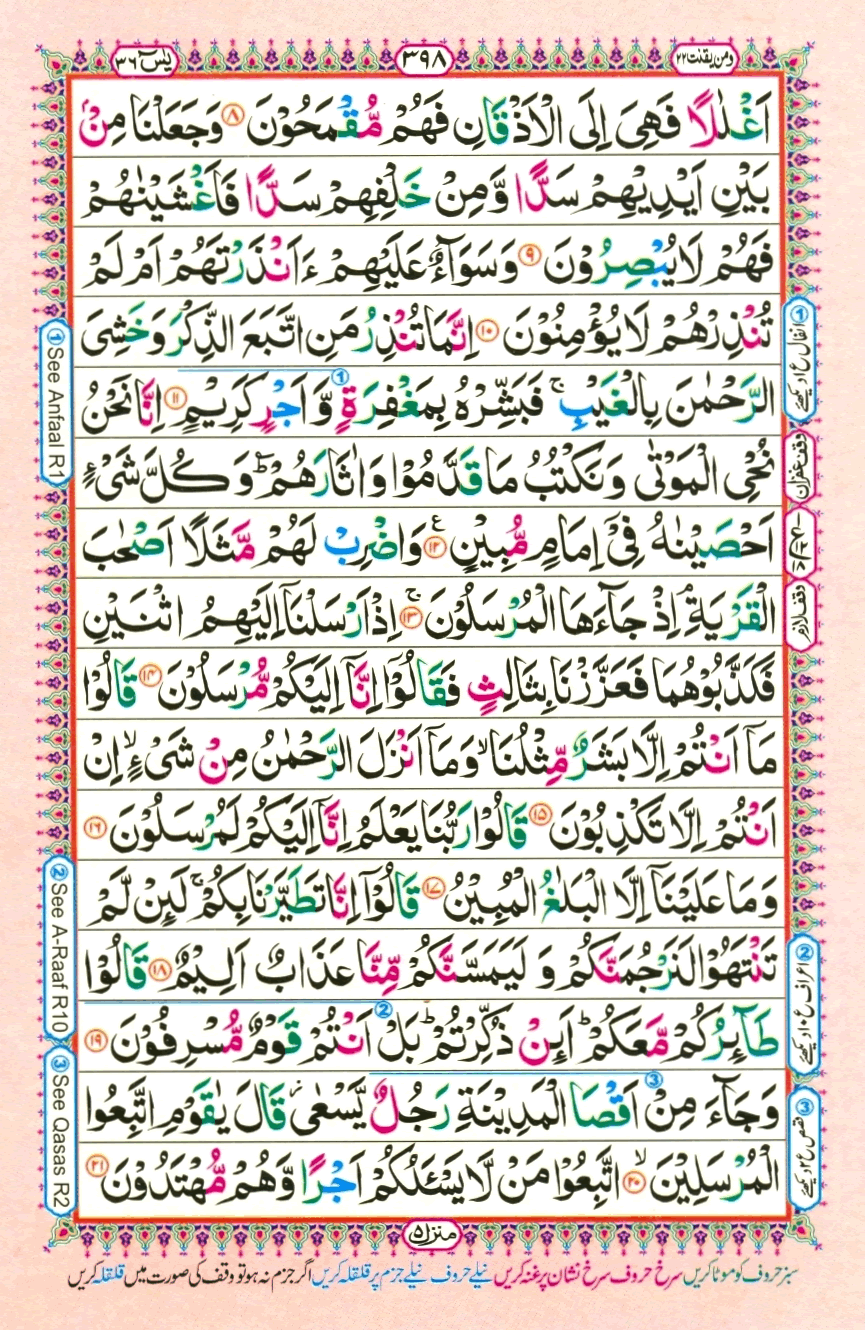 ومن یقنت ۲۲
۳۹۸
یٰسٓ ۳۶
اَغْلٰلًا فَهِىَ اِلَى الْاَذْقَانِ فَهُمْ مُّقْمَحُوْنَ ۸ وَجَعَلْنَا مِنْۢ
بَيْنِ اَيْدِيْهِمْ سَدًّا وَّمِنْ خَلْفِهِمْ سَدًّا فَاَغْشَيْنٰهُمْ
فَهُمْ لَا يُبْصِرُوْنَ ۹ وَسَوَآءٌ عَلَيْهِمْ ءَاَنْذَرْتَهُمْ اَمْ لَمْ
تُنْذِرْهُمْ لَا يُؤْمِنُوْنَ ۱۰ اِنَّمَا تُنْذِرُ مَنِ اتَّبَعَ الذِّكْرَ وَخَشِىَ
الرَّحْمٰنَ بِالْغَيْبِ ۚ فَبَشِّرْهُ بِمَغْفِرَةٍ وَّاَجْرٍ كَرِيْمٍ ۱۱ اِنَّا نَحْنُ
نُحْىِ الْمَوْتٰى وَنَكْتُبُ مَا قَدَّمُوْا وَاٰثَارَهُمْ ؕ وَكُلَّ شَىْءٍ
اَحْصَيْنٰهُ فِىْۤ اِمَامٍ مُّبِيْنٍ ۱۲ وَاضْرِبْ لَهُمْ مَّثَلًا اَصْحٰبَ
الْقَرْيَةِ ۘ اِذْ جَآءَهَا الْمُرْسَلُوْنَ ۱۳ ۚ اِذْ اَرْسَلْنَاۤ اِلَيْهِمُ اثْنَيْنِ
فَكَذَّبُوْهُمَا فَعَزَّزْنَا بِثَالِثٍ فَقَالُوْۤا اِنَّاۤ اِلَيْكُمْ مُّرْسَلُوْنَ ۱۴ قَالُوْا
مَاۤ اَنْتُمْ اِلَّا بَشَرٌ مِّثْلُنَا ۙ وَمَاۤ اَنْزَلَ الرَّحْمٰنُ مِنْ شَىْءٍ ۙ اِنْ
اَنْتُمْ اِلَّا تَكْذِبُوْنَ ۱۵ قَالُوْا رَبُّنَا يَعْلَمُ اِنَّاۤ اِلَيْكُمْ لَمُرْسَلُوْنَ ۱۶
وَمَا عَلَيْنَاۤ اِلَّا الْبَلٰغُ الْمُبِيْنُ ۱۷ قَالُوْۤا اِنَّا تَطَيَّرْنَا بِكُمْ ۚ لَئِنْ لَّمْ
تَنْتَهُوْا لَنَرْجُمَنَّكُمْ وَلَيَمَسَّنَّكُمْ مِّنَّا عَذَابٌ اَلِيْمٌ ۱۸ قَالُوْا
طَآئِرُكُمْ مَّعَكُمْ ؕ اَئِنْ ذُكِّرْتُمْ ؕ بَلْ اَنْتُمْ قَوْمٌ مُّسْرِفُوْنَ ۱۹
وَجَآءَ مِنْ اَقْصَا الْمَدِيْنَةِ رَجُلٌ يَّسْعٰى قَالَ يٰقَوْمِ اتَّبِعُوا
الْمُرْسَلِيْنَ ۲۰ ۙ اتَّبِعُوْا مَنْ لَّا يَسْئَلُكُمْ اَجْرًا وَّهُمْ مُّهْتَدُوْنَ ۲۱
① انفال ع ۱ دیکھئے
وقف غفران
وقف لازم
② اعراف ع ۱۰ دیکھئے
③ قصص ع ۲ دیکھئے
① See Anfaal R1
② See A-Raaf R10
③ See Qasas R2
منزل ۵
سبز حروف کو موٹا کریں سرخ حروف سرخ نشان پر غنہ کریں نیلے حروف نیلے جزم پر قلقلہ کریں اگر جزم نہ ہو تو وقف کی صورت میں قلقلہ کریں